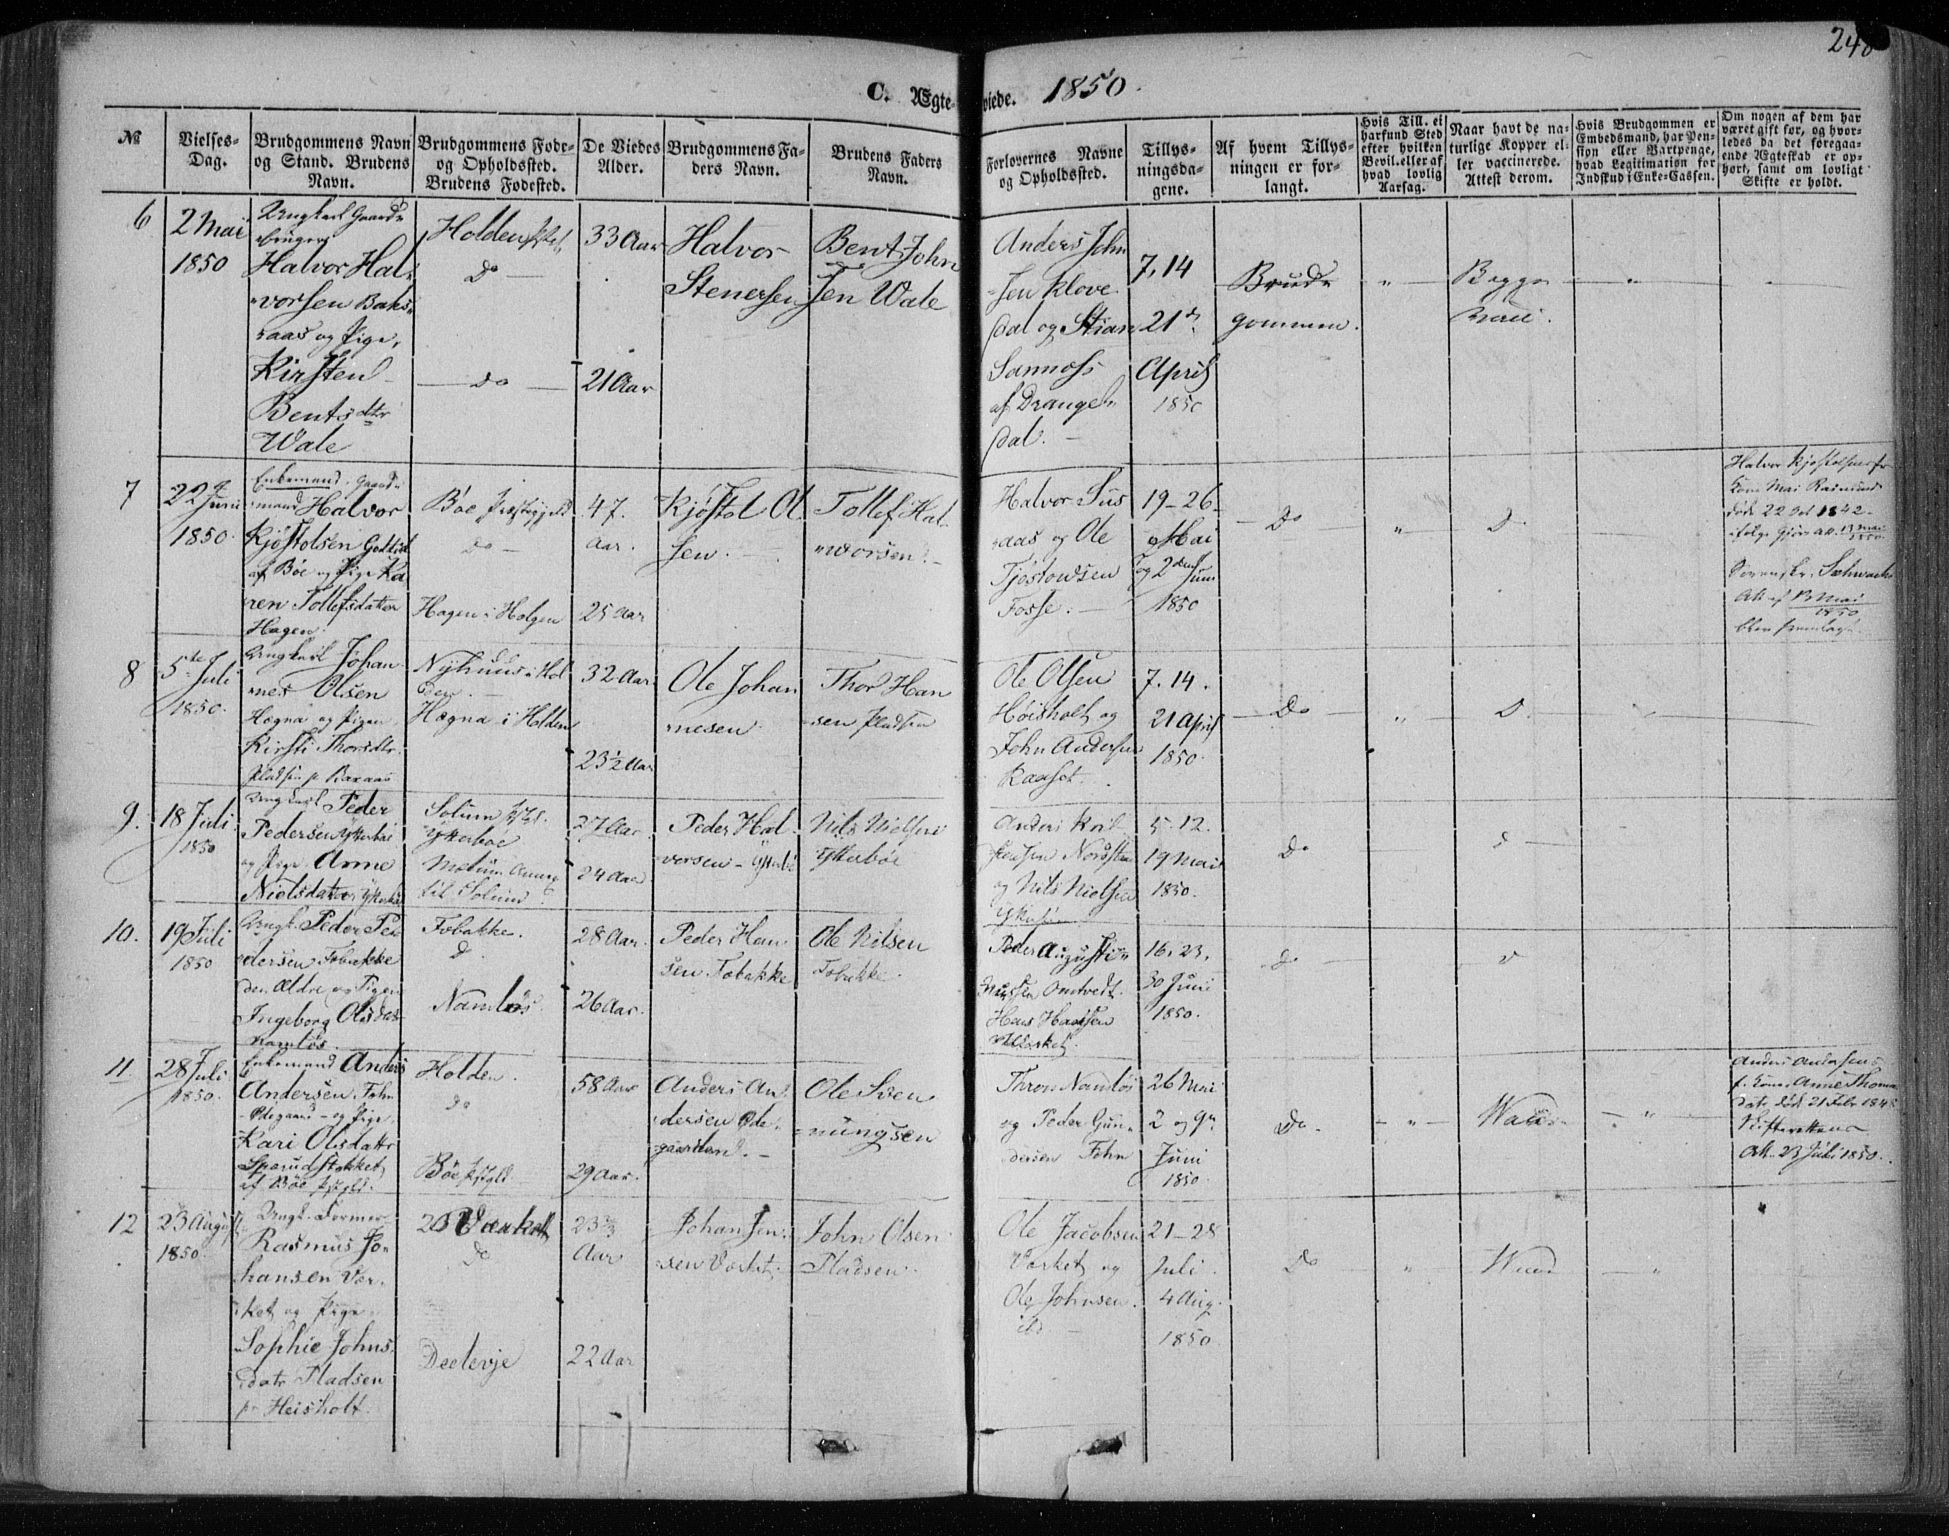 248
C. Ægteviede. 1850.
№
Vielses-
Dag.
Brudgommens Navn
og Stand. Brudens
Navn.
Brudgommens Føde-
og Opholdssted.
Brudens Fødested.
De Viedes
Alder.
Brudgommens Fa-
ders Navn.
Brudens Faders
Navn.
Forlovernes Navne
og Opholdssted.
Tillys-
ningsda-
gene.
Af hvem Tillys-
ningen er for-
langt.
Hvis Till. ei
har fund Sted
efter hvilken
Bevil. eller af
hvad lovlig
Aarsag.
Naar havt de na-
turlige Kopper el-
ler vaccinerede.
Attest derom.
Hvis Brudgommen er
Embedsmand, har Pen-
sion eller Vartpenge,
hvad Legitimation for
Indskud i Enke-Cassen.
Om nogen af dem har
været gift før, og hvor-
ledes da det foregaa-
ende Ægteskab er op-
hørt, samt om lovligt
Skifte er holdt.
6
2 Mai
1850
Ungkarl Gaard-
bruger
Halvor Hal-
vorsen Baks-
aas og Pige,
Kirsten
Bentsdtr
Wale
Holden
Do
Do
33 Aar
21 Aar
Halvor
Stenersen
Bent John
sen Wale
Anders John
sen Kleve
dal og Stian
Sannæss
af Drange-
dal.
7, 14
21de
April
1850
Brud-
gommen.
Begge
vacc.
7
22de Juni
1850.
Enkemand, Gaard-
mand Halvor
Kjøstolsen
af Bøe og Pige Ka
ren Tollefsdatter
Hagen.
Bøe Præstegjeld
Do
Hagen i Holden
47.
Aar.
25 Aar
Kjøstol Ol
sen.
Tollef Hal
vorsen.
Halvor
aas og Ole
Tjøstowsen
Fosse.
19-26
Mai
og 2den Juni
1850
Do
D.
Halvor Kjøstolsens f.
Kone Mai Rasmusd
døde 22 Oct 1842
ifølge
Att af 13 Mai
1850
blev fremlagt.
8
5te Juli
1850.
Ungkarl Johan
nes Olsen
Hægna og Pigen
Kirsti Thorsdtr
Pladsen p. Baxaas
Nyhuus i Hol
den.
Hægna i Holden
32 Aar.
23 1/2 Aar
Ole Johan
nesen.
Thor Han
sen Pladsen
Ole Olsen
Høisholt og
John Andersen
7. 14.
21 April
1850.
Do
D.
9.
18 Juli
1850
Ungkarl Peder
Pedersen Ytterbøe
og Pige Anne
Nielsdatter Ytterbøe
Solum
Ytterbøe
27 Aar
24 Aar
Peder Hal
vorsen Ytterbøe
Nils Nielsen
Ytterbøe
Anders
og Nils Nielsen
5. 12.
19 Mai
1850.
Do
10.
19 Juli
1850
Ungk. Peder Pe
dersen Tobakke
den Ældre og Pigen
Ingeborg Olsdat-
Namløs.
Tobakke.
D.
Namløs.
28 Aar.
26 Aar.
Peder Han
sen Tobakke
Ole Nilsen
Tobakke.
Peder Augusti-
nussen Omtvedt.
Hans Hansen
16. 23.
30 Juni
1850.
Do
11
28 Juli
1850.
Enkemand Anders
Andersen
Ødegaard og Pige
Kari Olsdattr
af Bøe
Holden.
Do
Bøe
58 Aar
29 Aar.
Anders An
dersen Øde-
gaarden.
Ole Sven
nungsen
Thron Namløs
og Peder Gun-
dersen
26 Mai
2 og 9de
Juni
1850.
Do.
Anders Andersens
f. Kone Anne Thomas
datr død 21 Febr 184
Skifterettens
Att. 23 Juli 1850.
12
23 August
1850.
Ungk. Former
Rasmus Jo-
hansen Vær-
ket og Pige
Sophie Johns
datr Pladsen
pr Heisholt.
Værket
Do
23 2/3
Aar
22 Aar
Johan Jen
sen Værket.
John Olsen
Pladsen.
Ole Jacobsen
Værket og
Ole Johnsen.
21-28
Juli
4 Aug.
1850.
Do